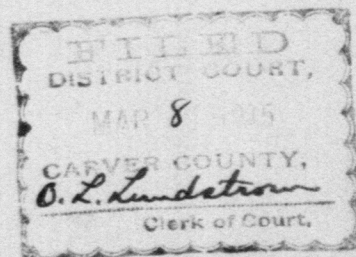 FILED
DISTRICT COURT,
MAR 8
CARVER COUNTY,
O. L. Lundstrom
Clerk of Court.